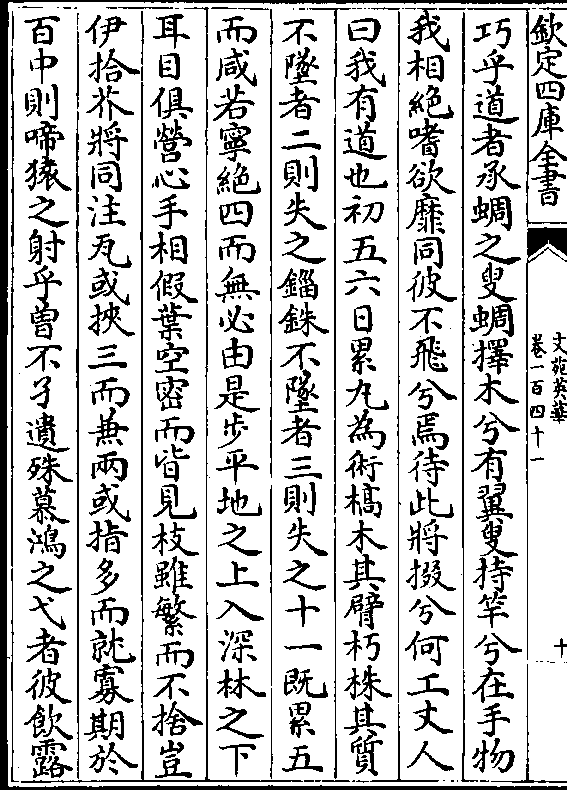 欽定四庫全書
文苑英華
卷一百四十一
十
巧乎道者承蜩之叟蜩擇木兮有翼叟持竿兮在手物
我相絶嗜欲靡同彼不飛兮焉待此將掇兮何工丈人
曰我有道也初五六日累丸為術槁木其臂朽株其質
不墜者二則失之錙銖不墜者三則失之十一既累五
而咸若寧絶四而無必由是步平地之上入深林之下
耳目俱營心手相假葉空密而皆見枝雖繁而不捨豈
伊拾芥將同注瓦或挾三而兼兩或指多而就寡期於
百中則啼猿之射乎曽不孑遺殊慕鴻之弋者彼飲露